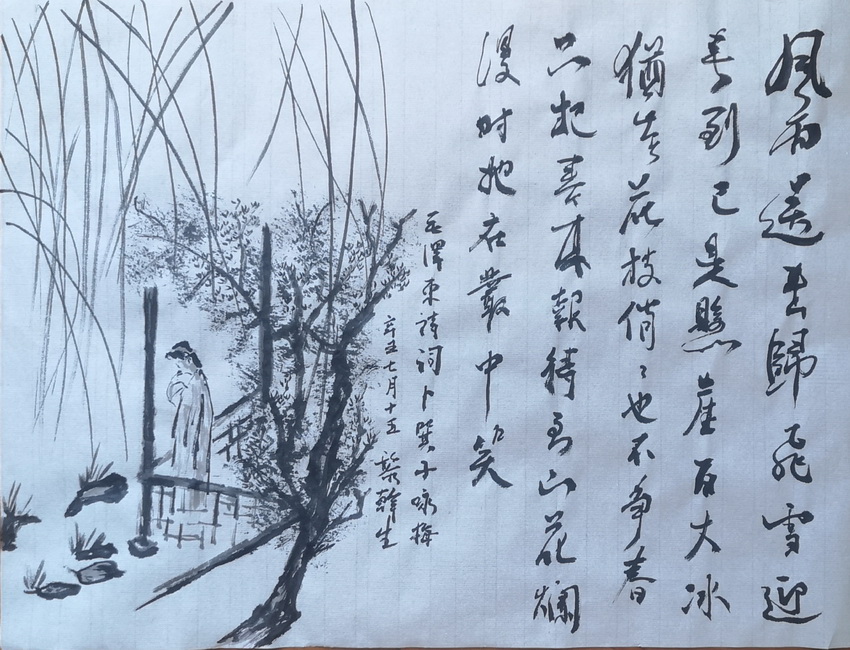 風雨送春歸飛雪迎
春到已是懸崖百丈冰
猶有花枝俏〻也不爭春
只把春來報待到山花爛
漫时她在叢中笑
毛澤東詩詞卜算子咏梅
辛丑七月十五 龔幹生